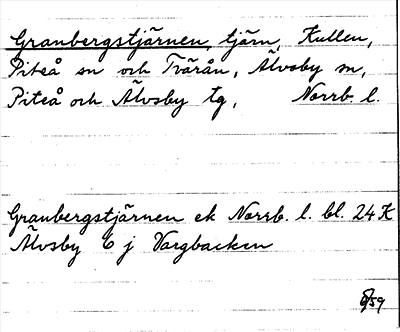 Granbergstjärnen, tjärn, Kullen,
Piteå sn och Tvärån, Älvsby sn,
Piteå och Älvsby tg, Norrb. l.
Granbergstjärnen ek Norrb. l. bl. 24 K
Älvsby 6 j Vargbacken
/59